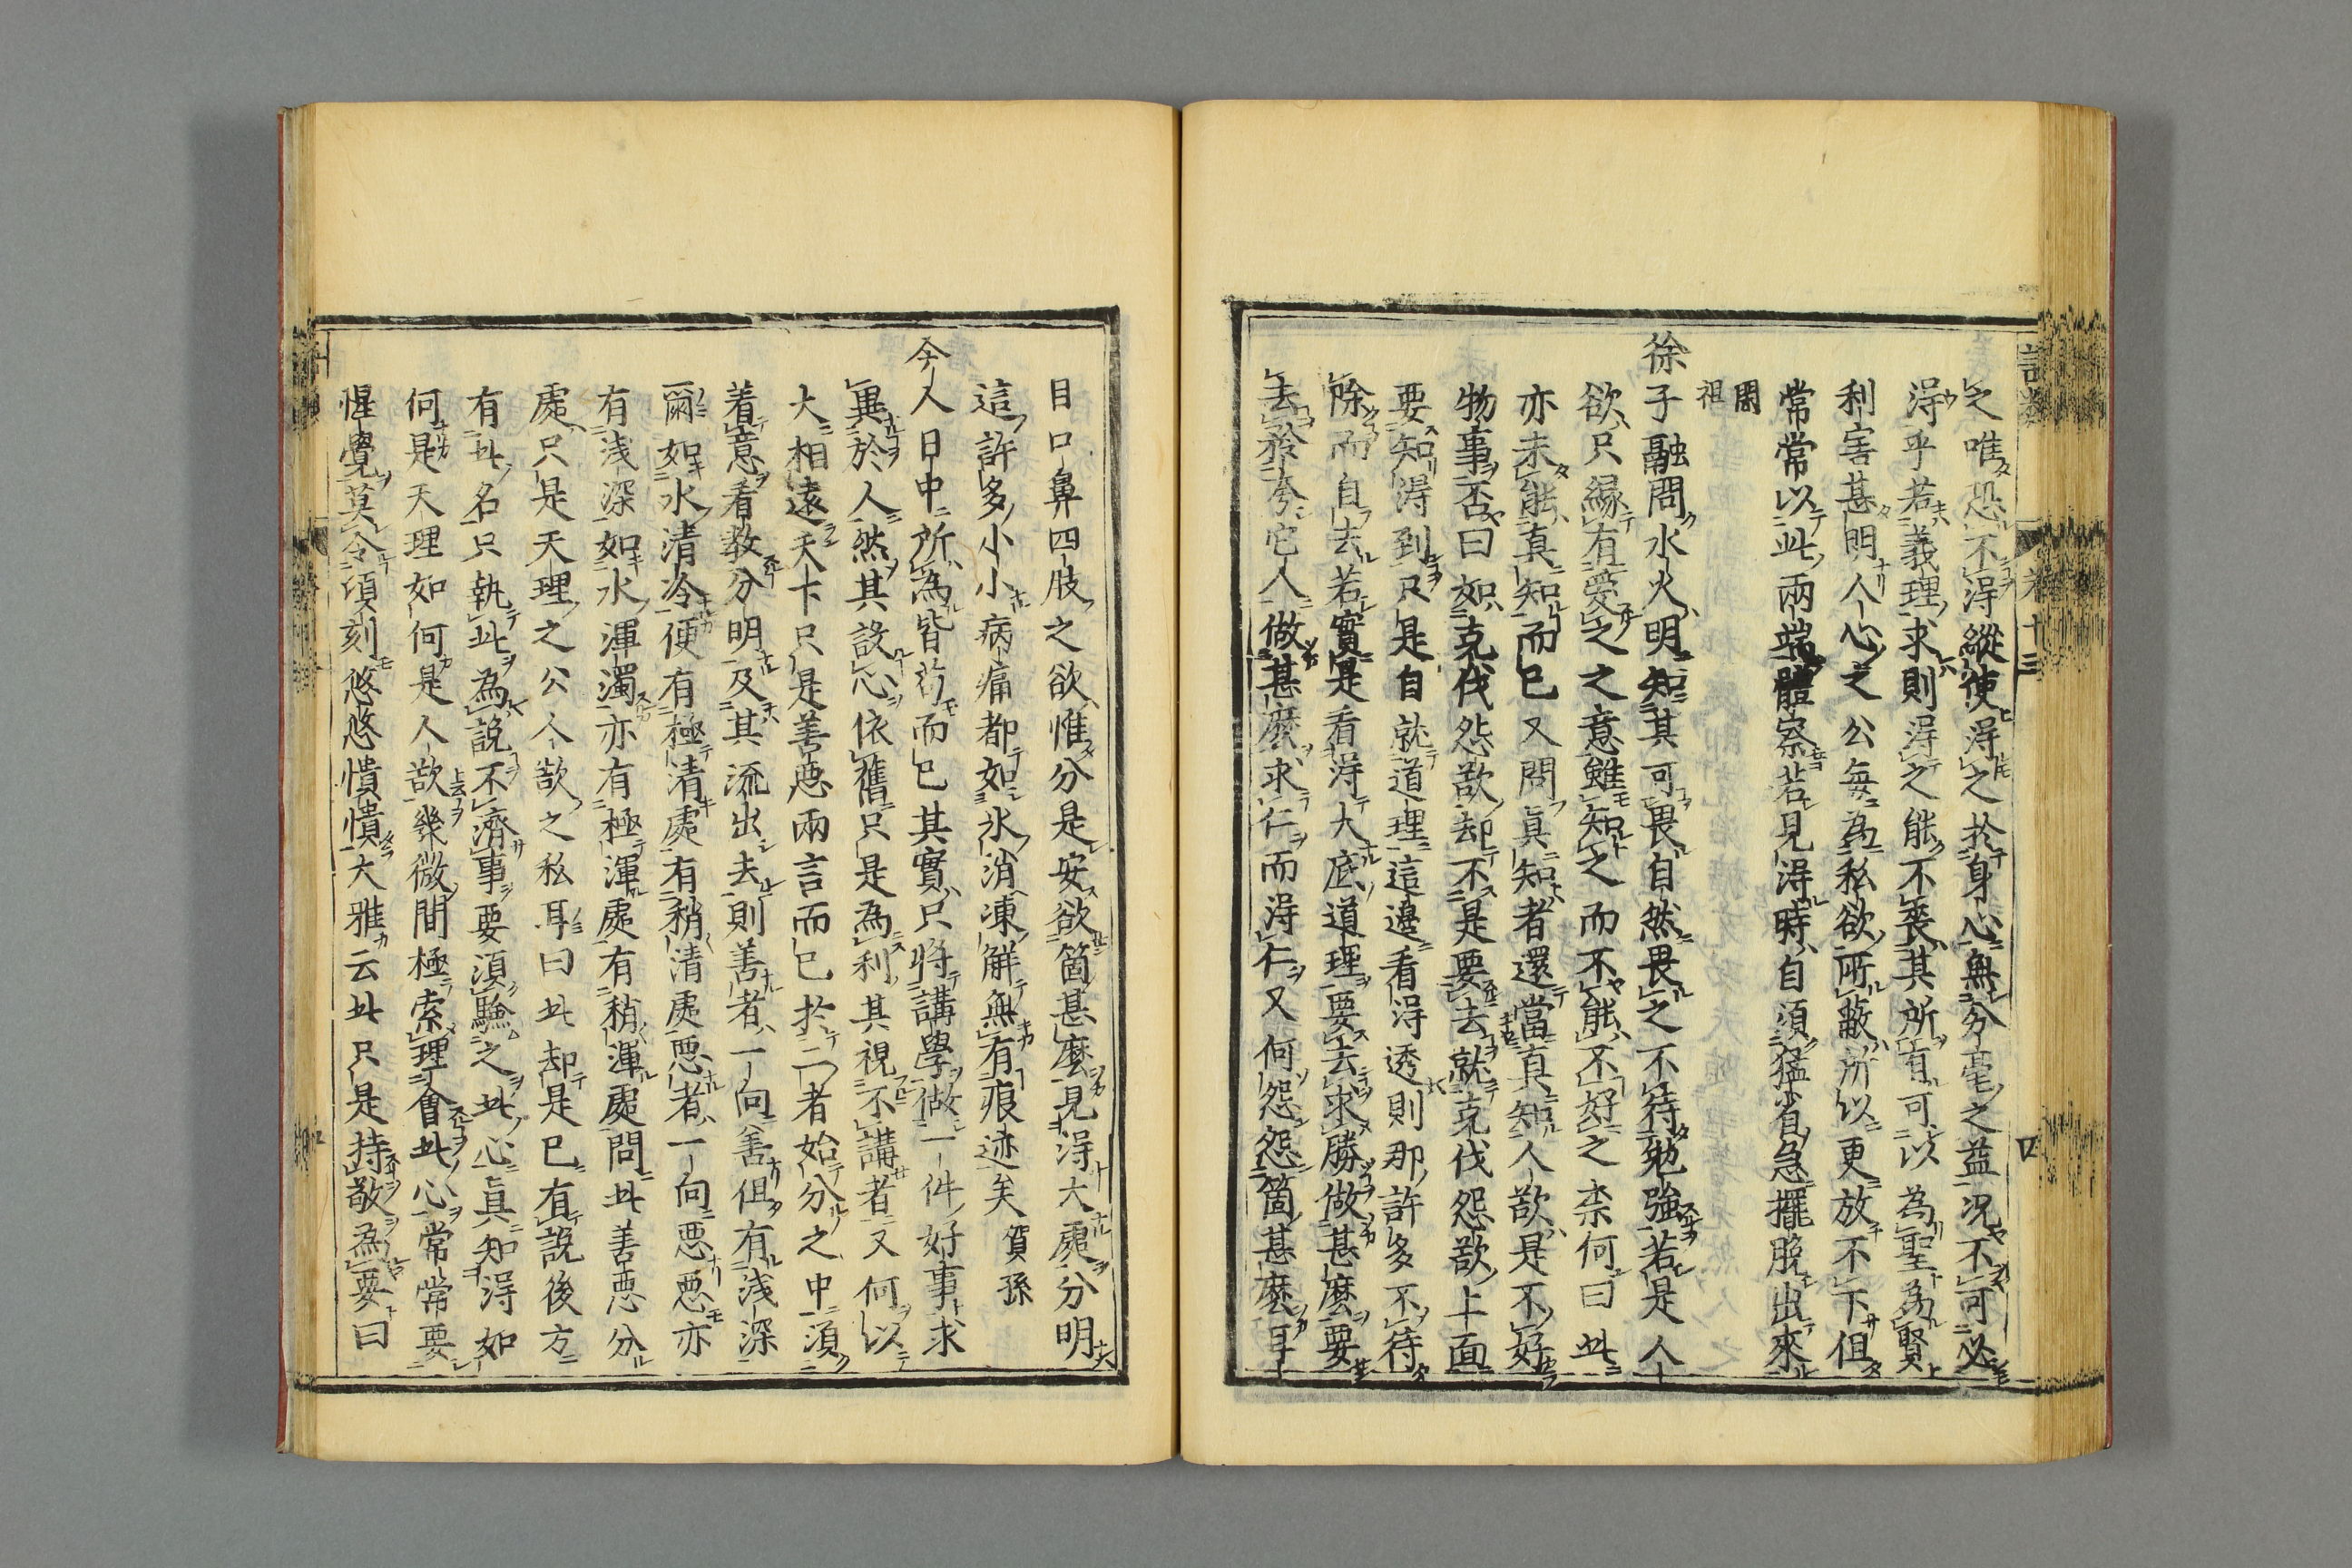 之唯恐不得縱使得之於身心無分毫之益況不可必
得乎若義理求則得之能不喪其所有可以為聖為賢
利害甚明人心之公每為私欲所蔽所以更放不下但
常常以此兩端體察若見得時自須猛省急擺脫出來
閎祖
徐子融問水火明知其可畏自然畏之不待勉強若是人
欲只緣有愛之之意雖知之而不能不好之柰何曰此
亦未能真知而已又問真知者還當真知人欲是不好
物事否曰如克伐怨欲却不是要去就克伐怨欲上面
要知得到只是自就道理這邊看得透則那許多不待
除而自去若實是看得大底道理要去求勝做甚麼要
去矜夸它人做甚麼求仁而得仁又何怨怨箇甚麼耳
目口鼻四肢之欲惟分是安欲箇甚麼見得大處分明
這許多小小病痛都如冰消凍解無有痕迹矣賀孫
今人日中所為皆苟而已其實只將講學做一件好事求
異於人然其設心依舊只是為利其視不講者又何以
大相遠天下只是善惡兩言而已於二者始分之中須
着意看教分明及其流出去則善者一向善但有淺深
爾如水清冷便有極清處有稍清處惡者一向惡惡亦
有淺深如水渾濁亦有極渾處有稍渾處問此善惡分
處只是天理之公人欲之私耳曰此却是已有說後方
有此名只執此為說不濟事要須驗之此心真知得如
何是天理如何是人欲幾微間極索理會此心常常要
惺覺莫令頃刻悠悠憒憒大雅云此只是持敬為要曰
卷十三
四